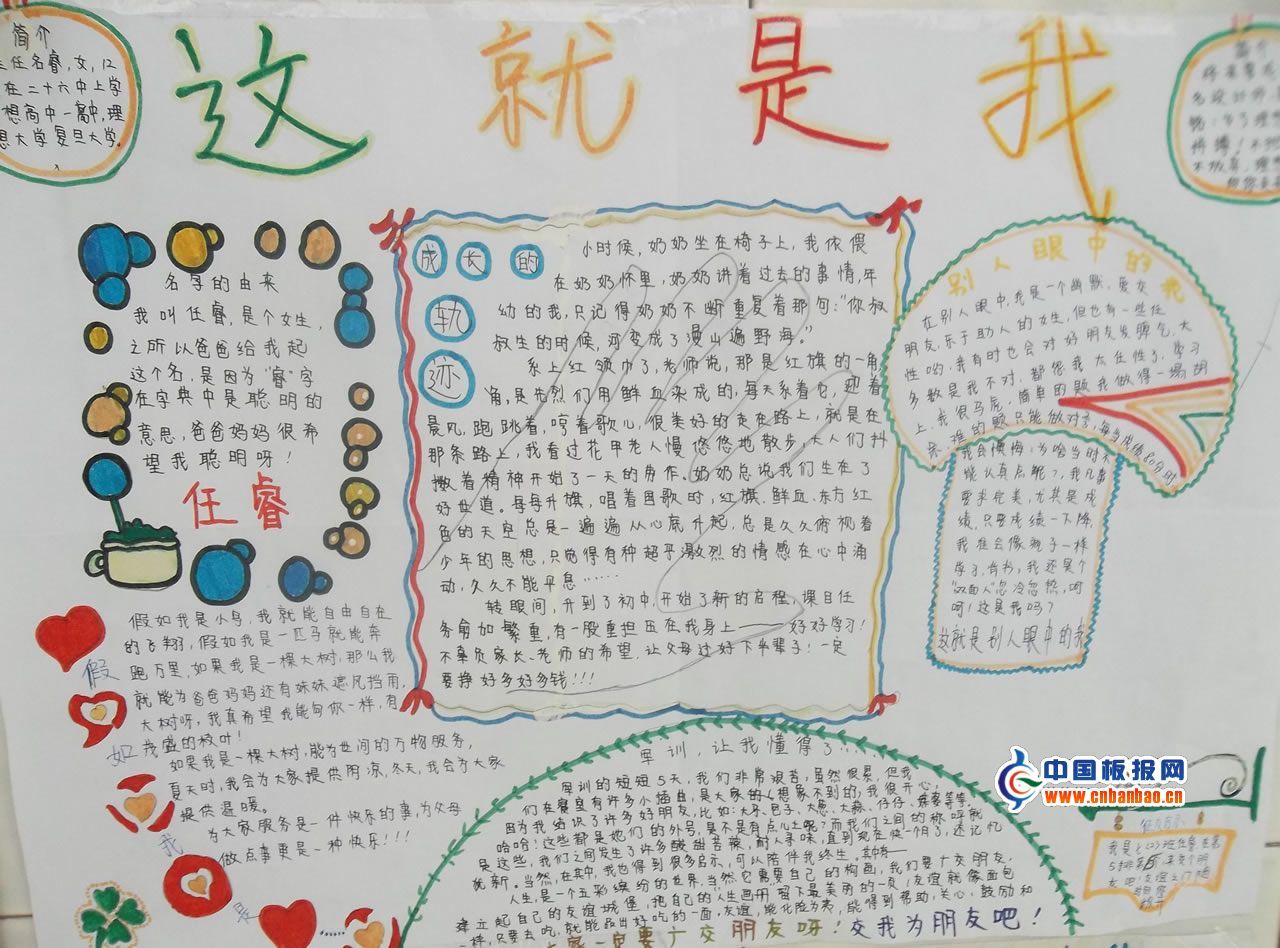 这就是我
简介
任名睿,女,12
在二十六中上学
想高中一高中,理
想大学复旦大学。
简介
名字的由来
我叫任睿,是个女生,
之所以爸爸给我起
这个名,是因为“睿”字
在字典中是聪明的
意思,爸爸妈妈很希
望我聪明呀!
任睿
成长的轨迹
小时候,奶奶坐在椅子上,我依偎
在奶奶怀里,奶奶讲着过去的事情,年
幼的我,只记得奶奶不断重复着那句:“你叔
叔生的时候,河变成了漫山遍野海。”
系上红领巾了,老师说,那是红旗的一角
角,是先烈们用鲜血染成的,每天系着它,迎着
晨风,跑跳着,哼着歌儿,很美好的走在路上,就是在
那条路上,我看过花甲老人慢悠悠地散步,大人们抖
擞着精神开始了一天的劳作。奶奶总说我们生在了
好世道。每每升旗,唱着国歌时,红旗.鲜血.东方红
色的天空总是一遍遍从心底升起,总是久久俯视着
少年的思想,只觉得有种超乎激烈的情感在心中涌
动,久久不能平息……
转眼间,升到了初中,开始了新的启程,课目任
务愈加繁重,有一股重担压在我身上——好好学习!
不辜负家长、老师的希望,让父母过好下半辈子!一定
要挣好多好多钱!!!
别人眼中的我
在别人眼中,我是一个幽默、爱友
朋友,乐于助人的女生,但也有一些任
性哟,我有时也会对好朋友发脾气,大
多数是我不对,都怪我太任性了,学习
上,我很马虎,简单的题我做得一塌胡
涂,难的题只能做对了,每当成绩80分时
我会懊悔:为啥当时不
能认真点呢?,我凡事
要求完美,尤其是成
绩,只要成绩一下降,
我准会像疯子一样
学习,背书,我还是个
“双面人”忽冷忽热,呵
呵!这是我吗?
这就是别人眼中的我
假如我是
假如我是小鸟,我就能自由自在
的飞翔,假如我是一匹马就能奔
跑万里,如果我是一棵大树,那么我
就能为爸爸妈妈还有妹妹遮风挡雨,
大树呀,我真希望我能向你一样,有
茂盛的枝叶!
如果我是一棵大树,能为世间的万物服务,
夏天时,我会为大家提供阴凉,冬天,我会为大家
提供温暖。
为大家服务是一件快乐的事,为父母
做点事更是一种快乐!!!
军训,让我懂得了…
军训的短短5天,我们非常艰苦,虽然很累,但我
们在寝室有许多小插曲,是大家的(想象不到的),我很开心,
因为我结识了许多好朋友,比如:大米、包子、大葱、大蒜、仔仔、麻麻等等,
哈哈!这些都是她们的外号,是不是有点儿土呢?而我们之间的称呼就
是这些,我们之间发生了许多酸甜苦辣,耐人寻味,直到现在快一个月了,还记忆
犹新。当然,在其中,我也得到很多启示,可以陪伴我终生。其中有——
人生,是一个五彩缤纷的世界,当然它需要自己的构画,我们要广交朋友,
建立起自己的友谊城堡,把自己的“人生画册”留下最美丽的一页,友谊就像面包
一样,只要去吃,就能品出好吃的一面,友谊,能化险为夷,能得到帮助,关心,鼓励和
一定要广交朋友呀!交我为朋友吧!
中国板报网
www.cnbanbao.cn